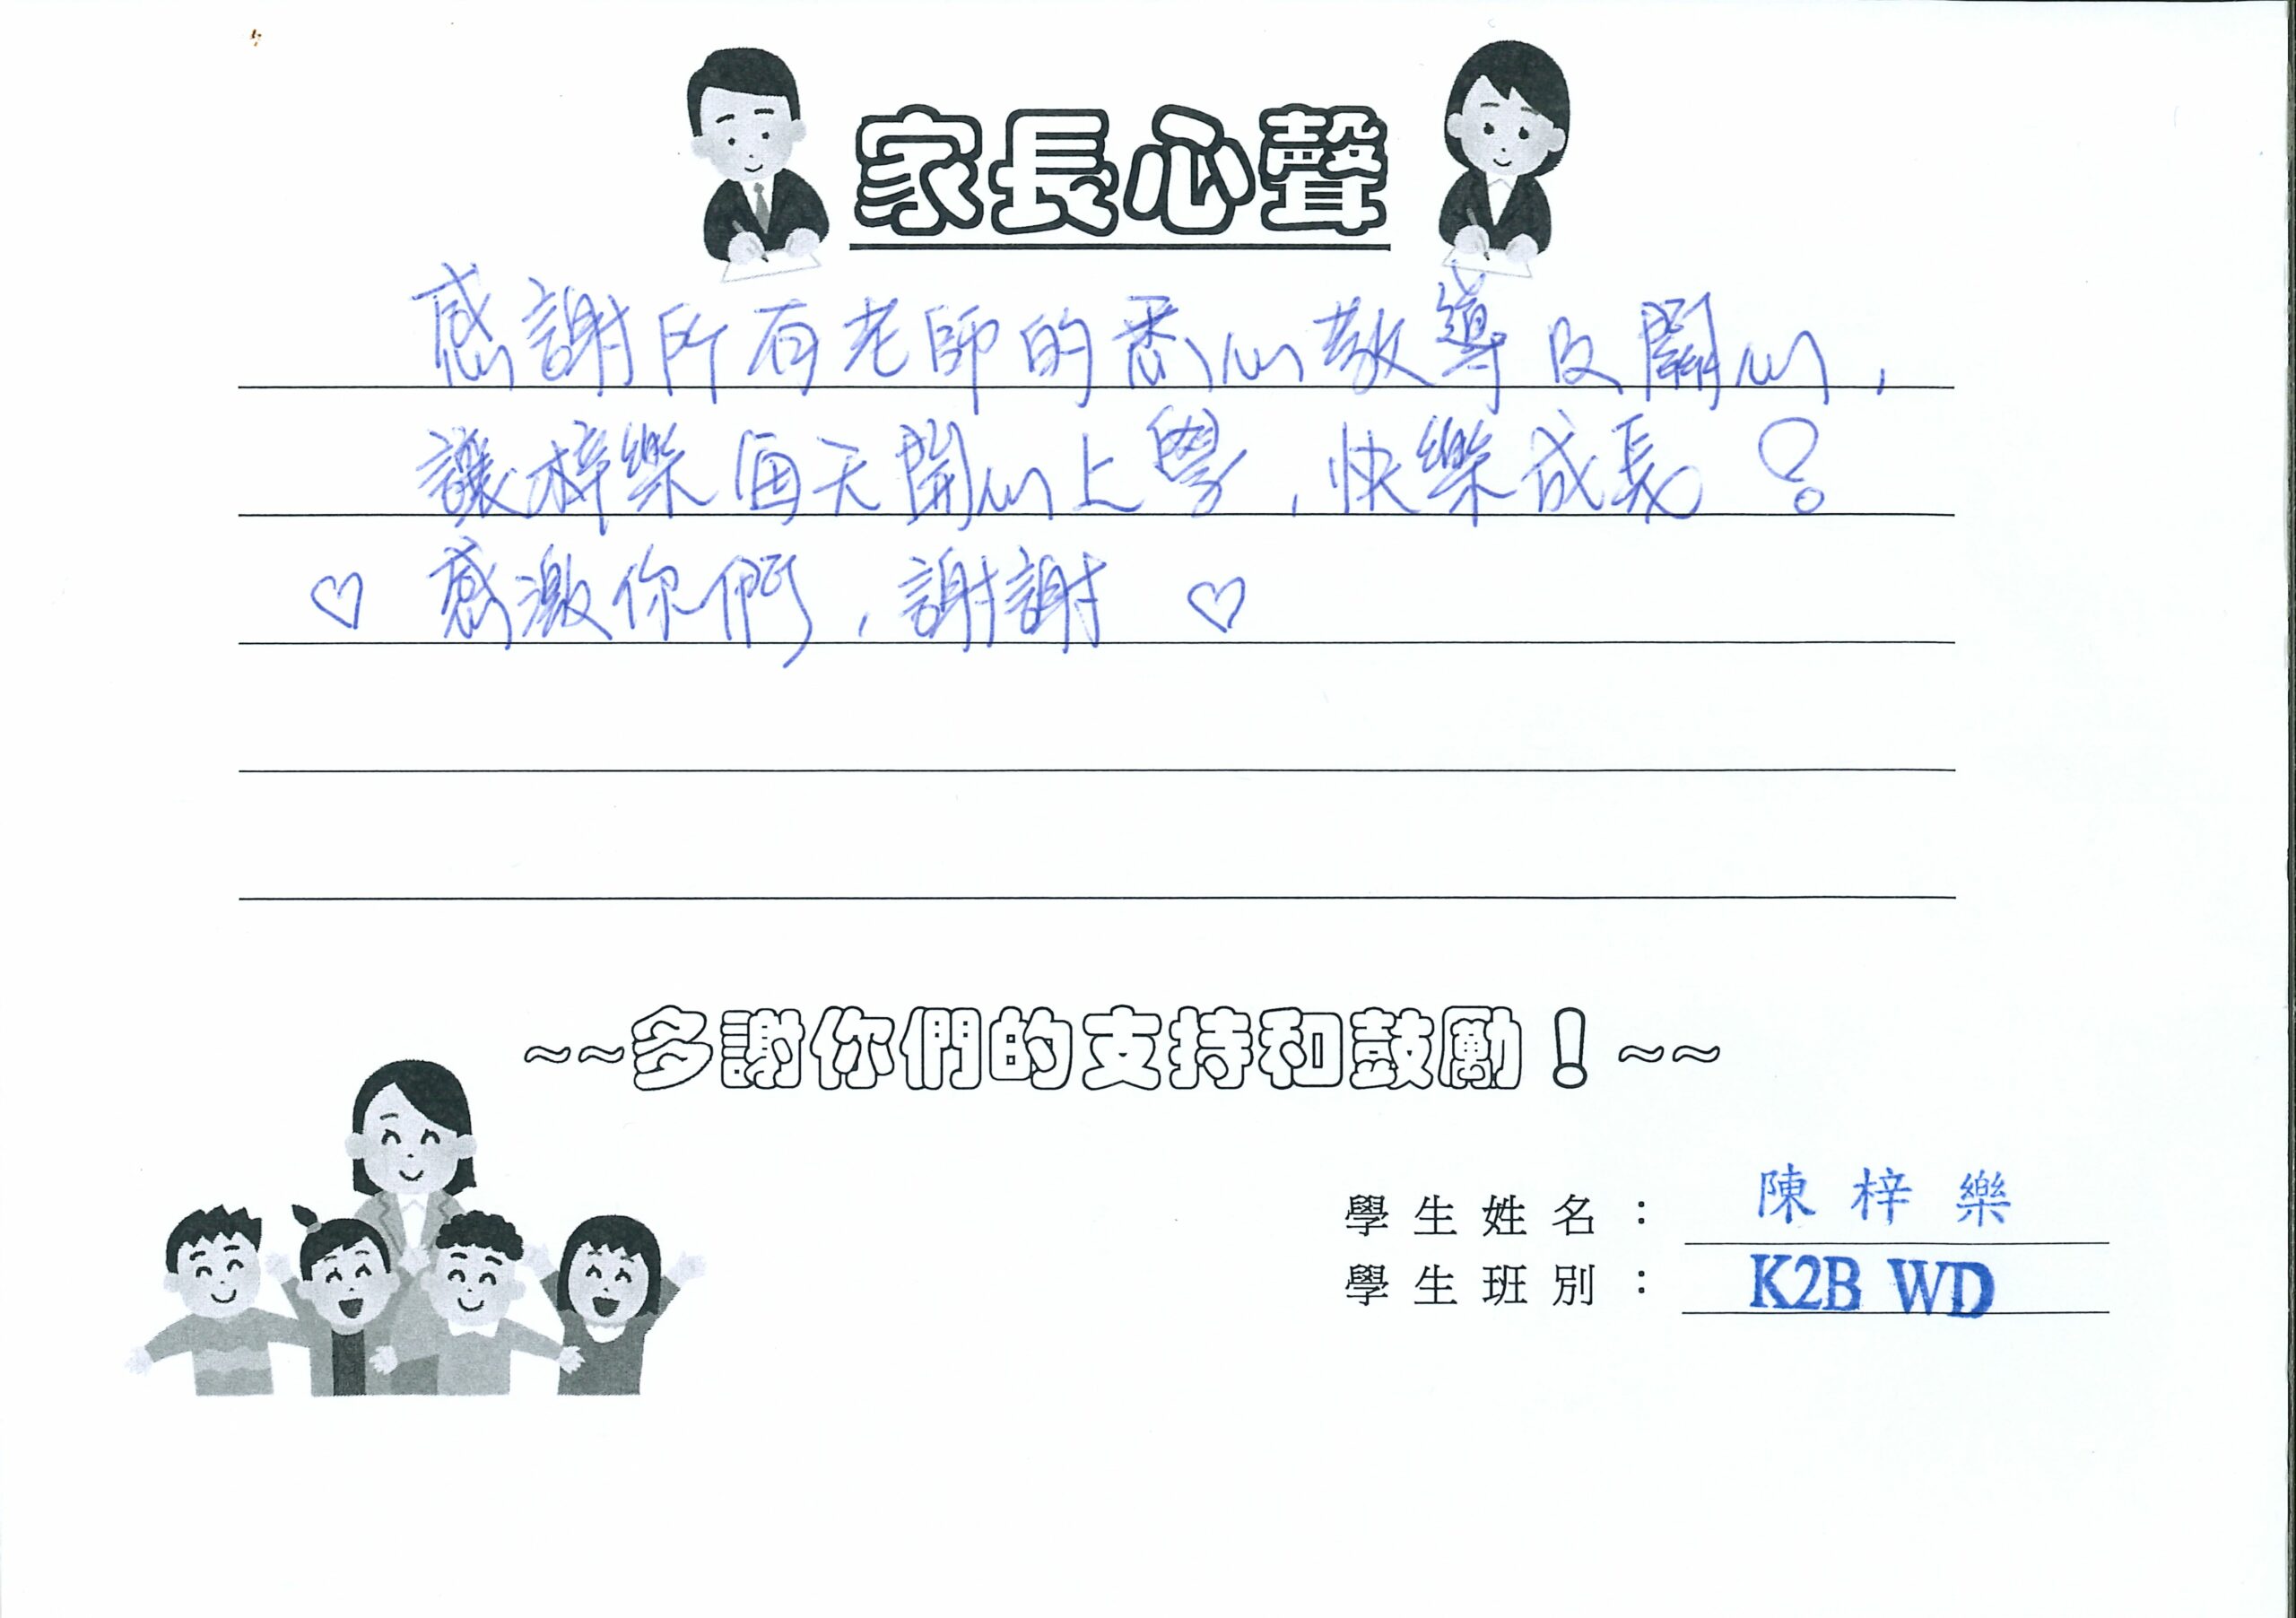 家長心聲
感謝所有老師的悉心教導及關心，
讓梓樂每天開心上學，快樂成長！
♡ 感激你們，謝謝 ♡
~~多謝你們的支持和鼓勵！~~
學生姓名： 陳梓樂
學生班別： K2B WD